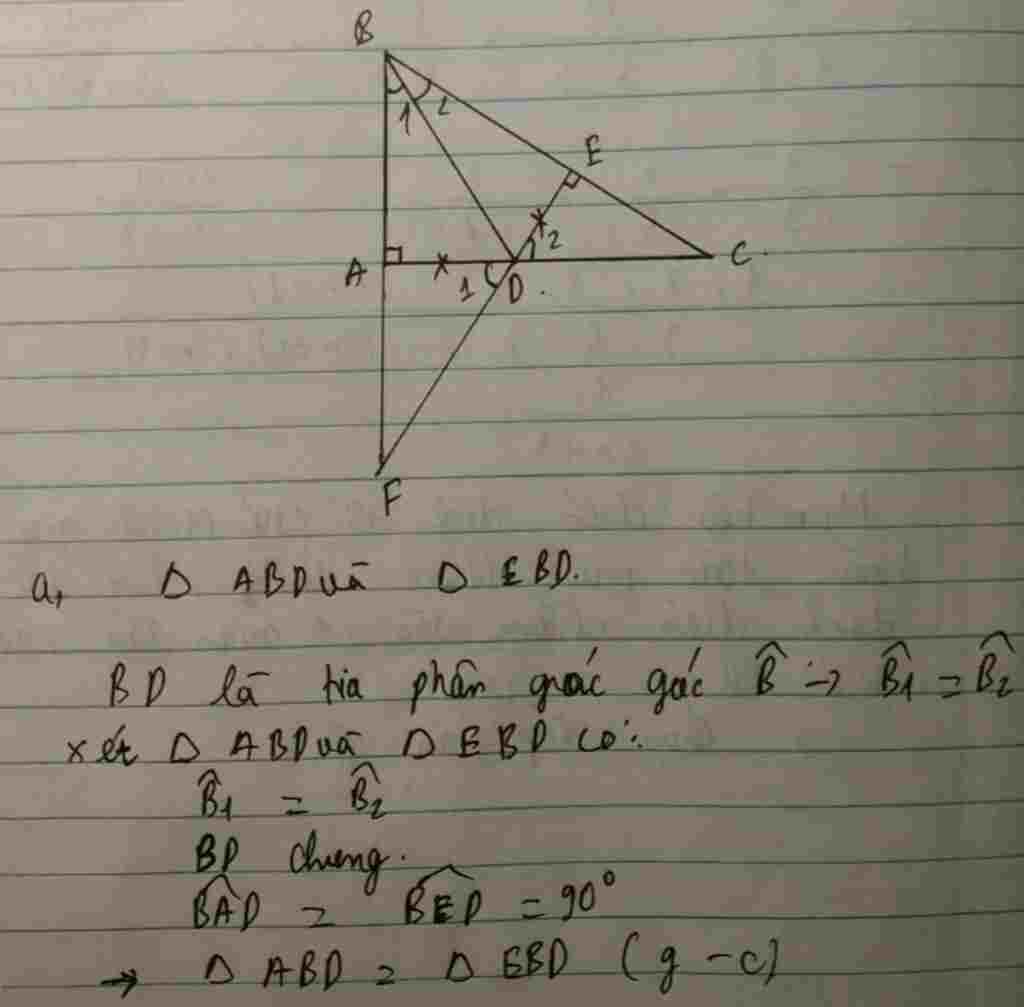 B
1 2
E
2
A
1 D.
C.
F
a, Δ ABD và Δ EBD.
BD là tia phân giác góc B̂ → B̂1 = B̂2
xét Δ ABD và Δ EBD có:
B̂1 = B̂2
BD chung.
B̂AD = B̂ED = 90°
→ Δ ABD = Δ EBD (g-c)